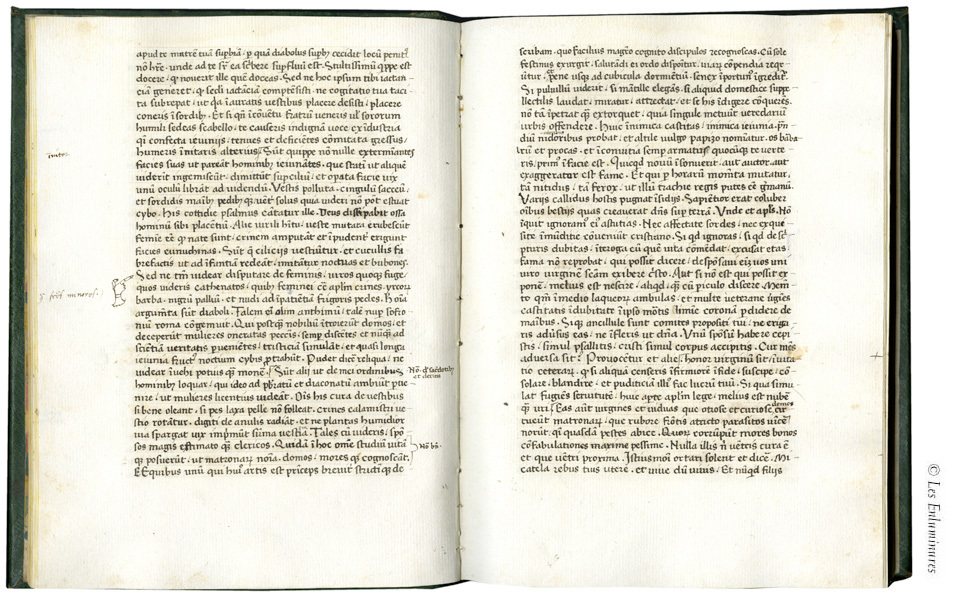 apud te matrē tuā supbiā · p quā diabolus supb9 cecidit locū penit9
nō hr̄e · unde ad te sr̄ ea scēbere supfluū est · Stultissimū qippe est
docere · qd nouerit ille quē doceas · Sed ne hoc ipsum tibi iactan-
ciā generet · qd sc̄di iactāciā comptēsisti · ne cogitatio tua taci-
ta subrepat · ut qa ī auratis uestibus placere desisti · placere
coneris ī sordib9 · Et si qn̄ ī cōuētu fratrū ueneris uł sororum
humili sedeas scabello · te causeris indignā uoce ex īdustria
qi confecta ieiuniis · tenues et deficiētes cōmutata gressus ·
humeris īnitaris alterius · Sūt quippe nō nulle exterminantes
facies suas ut pareāt hominib9 ieiunātes · que statī ut aliquē
uiderit īgemiscūt · dimittūt supciliū · et opata facie uix
unū oculū librāt ad uidendū · Vestis polluta · cingulū sacceū ·
et sordidis manib9 pedib9qz · uēt solus quia uideri nō pōt estuat
cybo · His cottidie psalmus cātatur ille · Deus dissipabit ossa
hominū sibi placētiū · Alie uirili hītu · ueste mutata erubescūt
femīe eē qd nate sunt · crinem amputāt et īpudent̄ erigunt
facies eunuchinas · Sūt qi ciliciis uestiūtur · et cucullis fa
brefactis ut ad īfantiā redeāt · imitātur noctuas et bubones ·
Sed ne tm̄ uidear disputare de feminis · uiros quoqz fuge ·
quos uideris cathenatos · quib9 feminei cē aplm̄ crines · yrcorū
barba · nigrū palliū · et nudi ad īpatiētiā frigoris pedes · H oīa
argumēta sūt diaboli · Talem ex olim anthimū · talē nup sofro-
niū roma cōgemuit · Qui postqz nobiliū ītroierūt domos · et
deceperūt mulieres onustatas peccis · semp discētes et nūqz ad
sciētiā ueritatis puenietēs · tristiciā simulāt · et quasi longa
ieiunia furtiu9 noctum cybis ptrahūt · Pudet dicē reliqua · ne
uidear īuehi potius qz monē · Sūt alij ut de mei ordinibus
hominib9 loquar · qui ideo ad pbratū et diaconatū ambiūt pue-
nire · ut mulieres licentius uideāt · Oīs his cura de uestibus
si bene oleant · si pes laxa pelle nō folleat · crines calamistri ue-
stio rotātur · digiti de anulis radiāt · et ne plantas humidior
uia spargat uix īprimūt sūma uestigia · Tales cū uideris · spō
sos magis estimato qz clericos · Quidā ī hoc omē studiū uitā
qz posuerūt · ut matronarū noīa · domos · mores qz cognoscāt ·
Ex quibus unū qui hui9 artis est prīceps breuit̄ strictī qz de
Nō · qd sacerdotib9
et clericis
Nō bn̄
scribam · quo facilius magr̄o cognito discipulos recognoscas · Cū sole
festinus exurgit · salutādi ei ordo dispōitur · uiarū cōpendia reqr-
ūtur · Pene usqz ad cubicula dormiētiū · senex īportun9 īgredit̄ ·
Si puluillū uiderit · si mātille elegās · si aliquid domestice supe-
llectilis · laudat · miratur · attrectat · et se his īdigere cōqueres ·
nō tā īpetrat qz extorquet · quia singule metuūt ueredariū
urbis offendere · Huic inimica castitas · inimica ieiunia · prā-
diū nidoribus probat · et altile uulgo papizo nominatur · os barba
rū et procax · et ī conuitia semp armatus · quocūqz te uerte-
ris · prim9 ī facie est · Quicqd nouū īsonuerit · aut auctor · aut
exaggerator est fame · Et qui p horarū momēta mutātur ·
tā nitidus · tā ferox · ut illū trachie regis putes eē germanū ·
Variis callidus hostis pugnat īsidijs · Sapiētior erat coluber
oībus bestijs quas creauerat dn̄s sup terrā · Vnde et apls · Nō
īquit ignoram9 ei9 astutias · Nec affectate sordes · nec exque-
site mūditie cōueniūt cristiano · Si qd ignoras · si qd de scri-
pturis dubitas · īterroga eū quē uita cōmēdat · excusat etas
fama nō reprobat · qui possit dicere · desponsaui ei9 uos uni
uiro uirginē scām exibere crīsto · Aut si nō est qui possit ex-
ponē · melius est nescire · aliqd · qz cū piculo discere · Memē-
to qm̄ ī medio laqueorū ambulas · et multe ueterane uirgīes
castitatis īdubitate ī ipso mōtis limīe coronā pdidere de
manibus · Si qe ancillule sunt comites propositi tui · ne eriga-
ris adūsus eas · ne īfleris ut dn̄a · Vnū spōsū habere cepi-
stis · simul psallitis · cristi simul corpus accipitis · Cur mēs
aduersa sit? Prouocetur et alie · Honor uirginū sit īuita-
tio ceterarū · qd si aliquā senseris īfirmiorē ī fide · suscipe · cō
solare · blandire · et pudicitiā illi9 fac lucrū tuū · Si qua simu-
lat fugiēs seruitutē · huic apte aplm̄ lege · melius est nubē
qz uri · Eas aūt uirgines et uiduas que otiose et curiose cir
domos
cueūt matronarū · que rubore frōtis attrito parasitos uicē
norūt · qi quasdā pestes abice · Quor corrūpūt mores bonos
cōfabulationes maxime pessime · Nulla illis nī uētris cura ē
et que uētri proxima · Istiusmōi ortari solent et dicē · Mi
catela rebus tuis utere · et uiue dū uiuis · Et nūqd filijs
© Les Enluminures